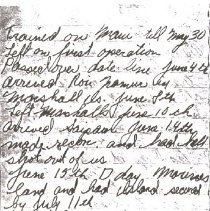 trained on Maui till May 30
left on first operation
Passed over date line June 4th
arrived
Marshall Is. June 8th
left Marshalls June 10th
arrived Saipan June 14th
made recon. and had hell
shot out of us
June 15th D day Marines
land and had island secured
by July 11th